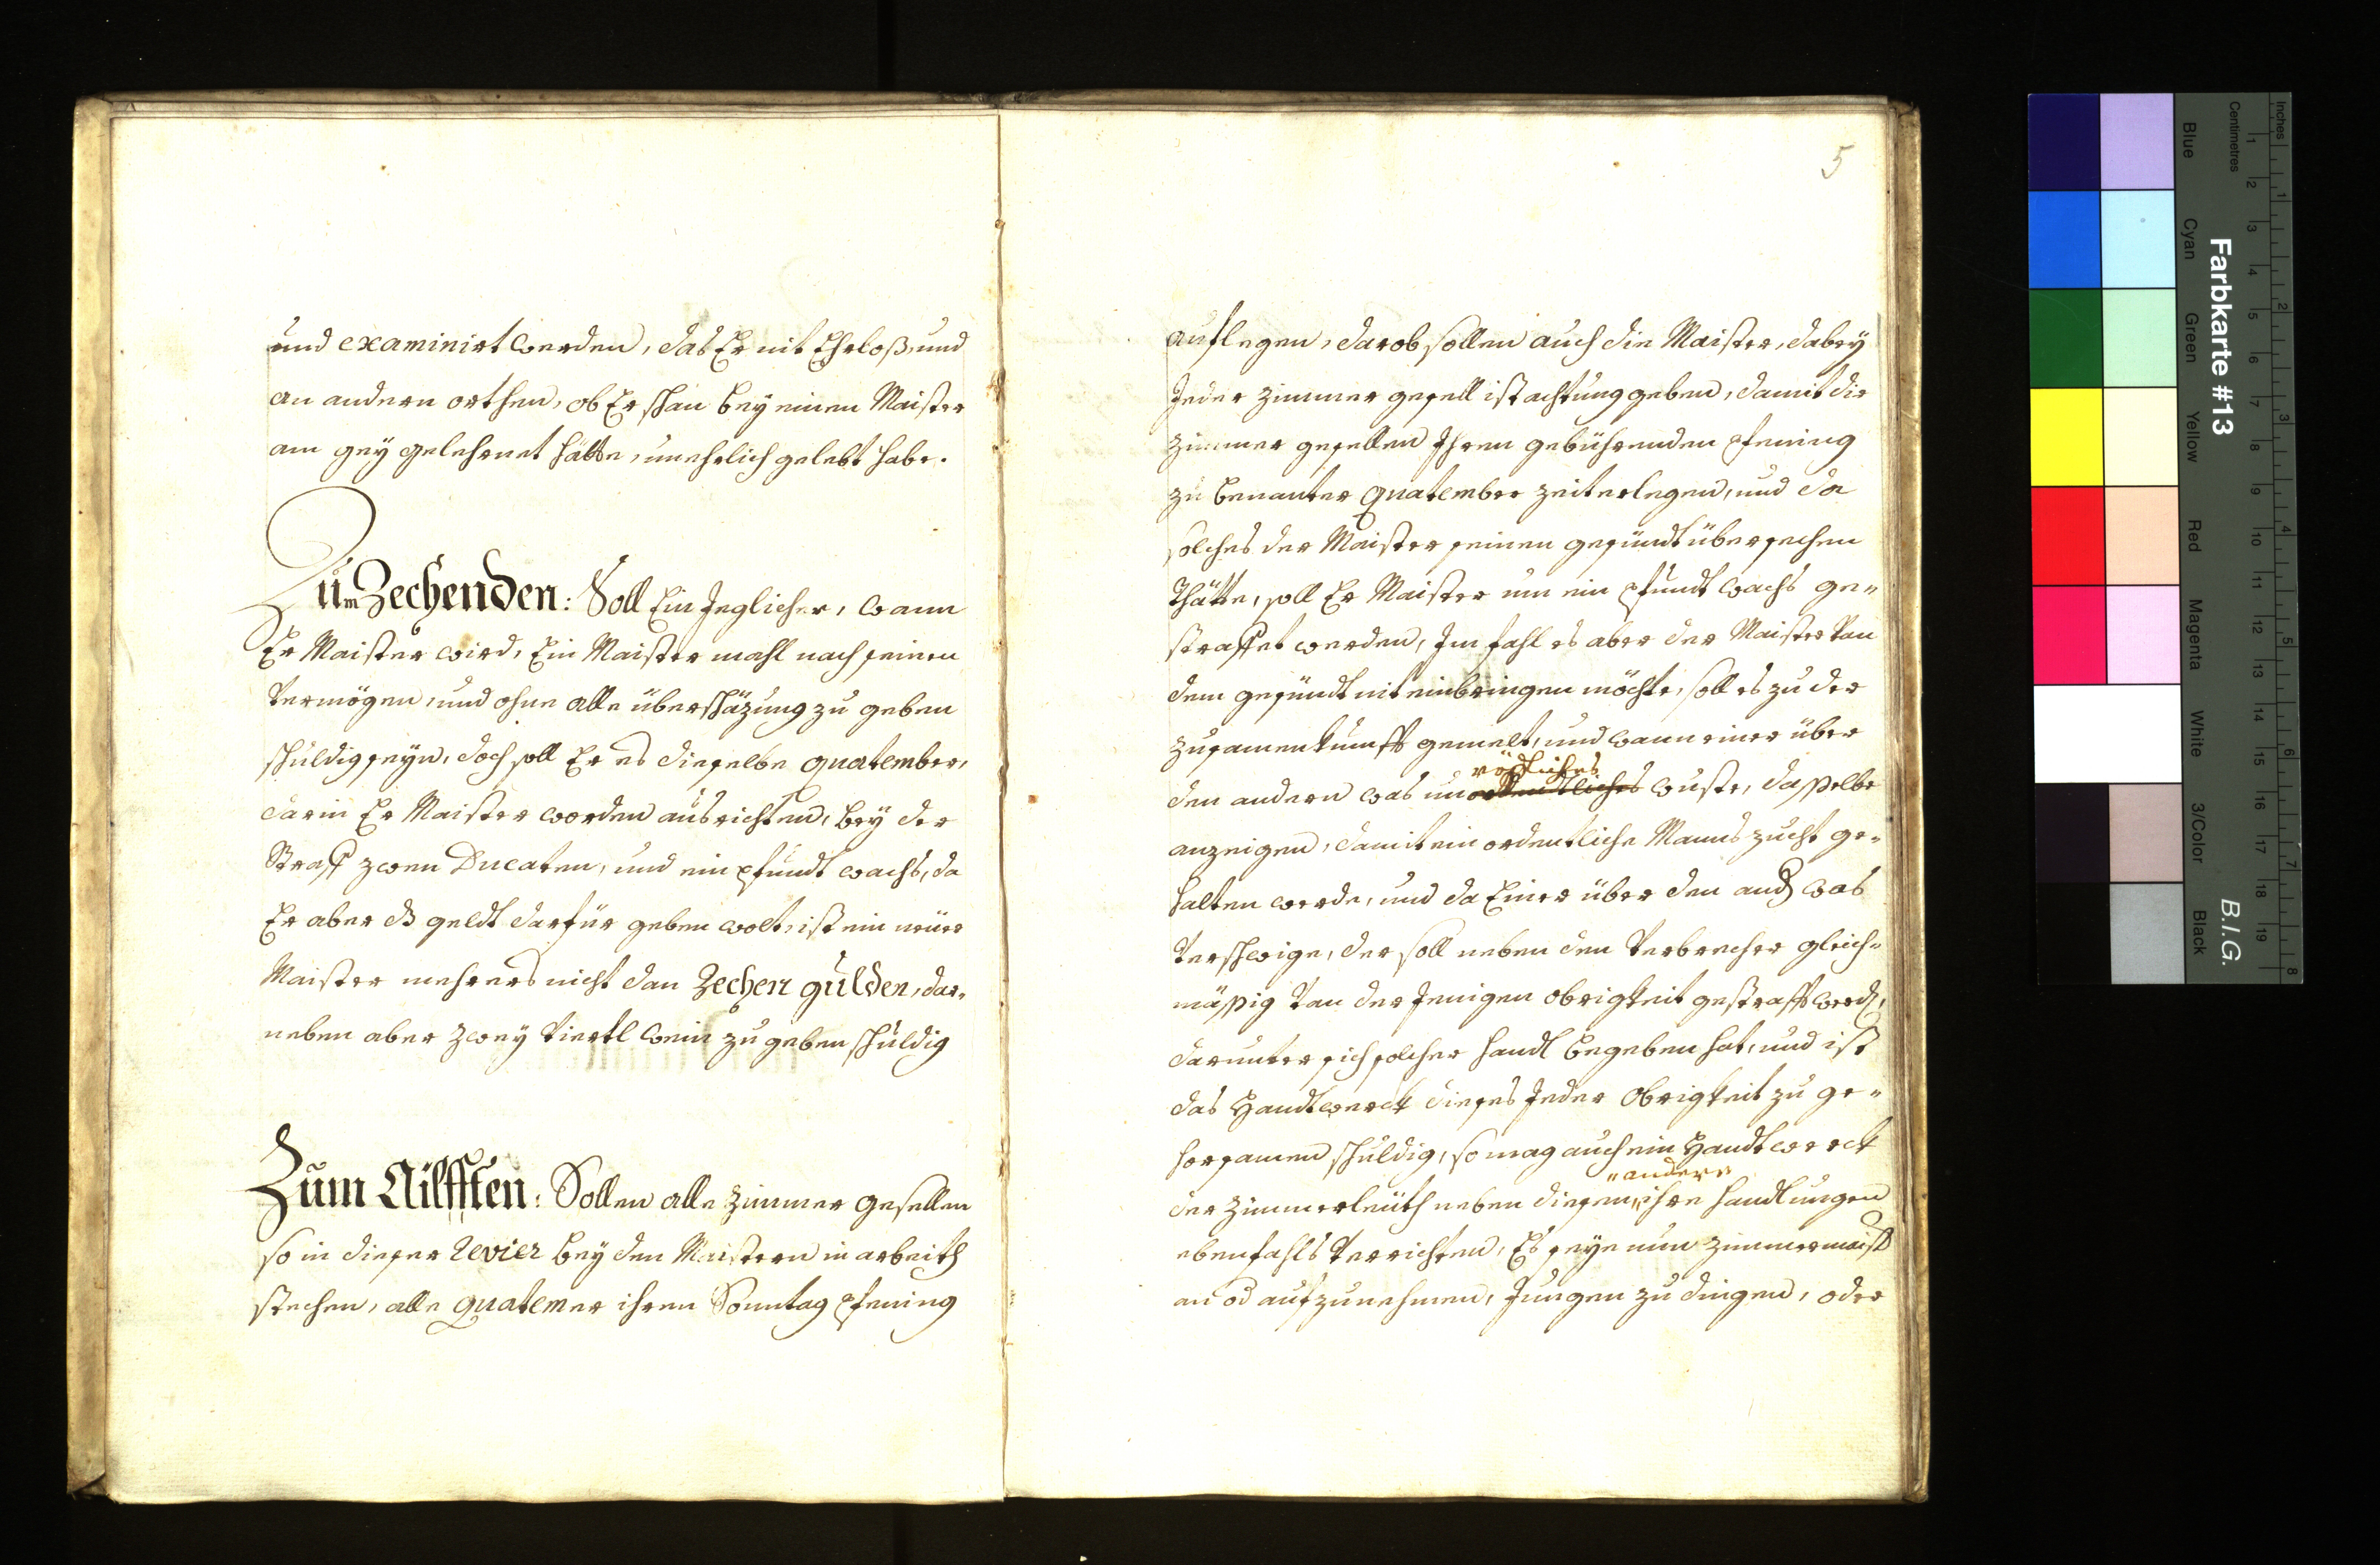 und examinirt werden, das Er nit Ehrloß, und
an andern orthen, ob Er schan bey einen Maister
am gey gelehrnet hätte, unehrlich gelebt habe.
Zum Zechenden: Soll Ein Jeglicher, wann
Er Maister wird, Ein Maister mahl nach seinen
Vermögen, und ohne alle überschäzung zu geben
schuldig seyn, doch soll Er es dieselbe quatember,
darin Er Maister worden ausrichten, bey der
Straff zwen Ducaten, und ein pfundt wachs, da
Er aber dz geldt darfür geben wolt, ist ein neüer
Maister mehrers nicht dan Zechen gulden, dar-
neben aber zwey Viertl wein zu geben schuldig
Zum Ailfften: Sollen alle Zimmer gesellen
so in dieser Revier bey den Maistern in arbeith
stechen, alle quatemer ihren Sonntag pfening
5
auflegen, darob sollen auch die Maister, dabey
Jeder Zimmer gesell ist achtung geben, damit die
Zimmer gesellen Ihren gebührenden pfening
zu benanter quatember zeit erlegen, und da
solches der Maister seinen gesündt übersechen
Thätte, soll Er Maister um ein pfundt wachs ge-
straffet werden, Im fahl es aber der Maister Van
dem gesündt nit einbringen möchte, soll es zu der
zusamenkunfft gemelt, und wann einer über
rödliches
den andern was unordentliches wuste, dasselbe
anzeigen, damit ein ordentliche Manns zucht ge-
halten werde, und da Einer über den and was
Verschwige, der soll neben den Verbrecher gleich-
mässig Van der Jenigen obrigkeit gestrafft werd,
darunter sich solcher handl begeben hat, und ist
das Handtwerck dieses Jeder Obrigkeit zu ge-
horsamen schuldig, so mag auch ein Handtwerck
andere
der Zimmerleüth neben diesen, ihre handlungen
ebenfahls Verrichten, Es seye nun Zimmermaist
an od aufzunehmen, Jungen zu dingen, oder